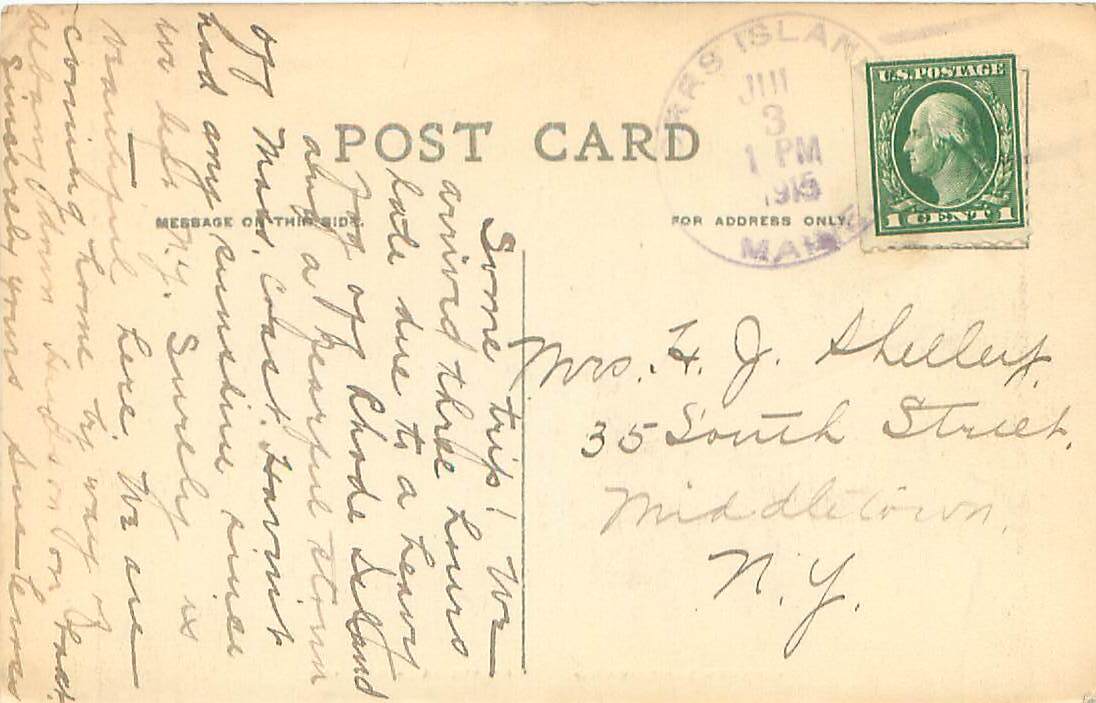 POST CARD
MESSAGE ON THIS SIDE.
FOR ADDRESS ONLY.
RRS ISLAN
3
1 PM
1915
MAINE
U.S. POSTAGE
1 CENT 1
Some trip! We
arrived three hours
late due to a heavy
fog off Rhode Island
and a fearful storm
off Mass. coast. Havent
had any sunshine since
we left N.Y. Surely is
beautiful here. We are
coming home by way of
Albany & down Hudson on boat.
Sincerely yours
Mrs. H. J. Shelley,
35 South Street,
Middletown,
N.Y.